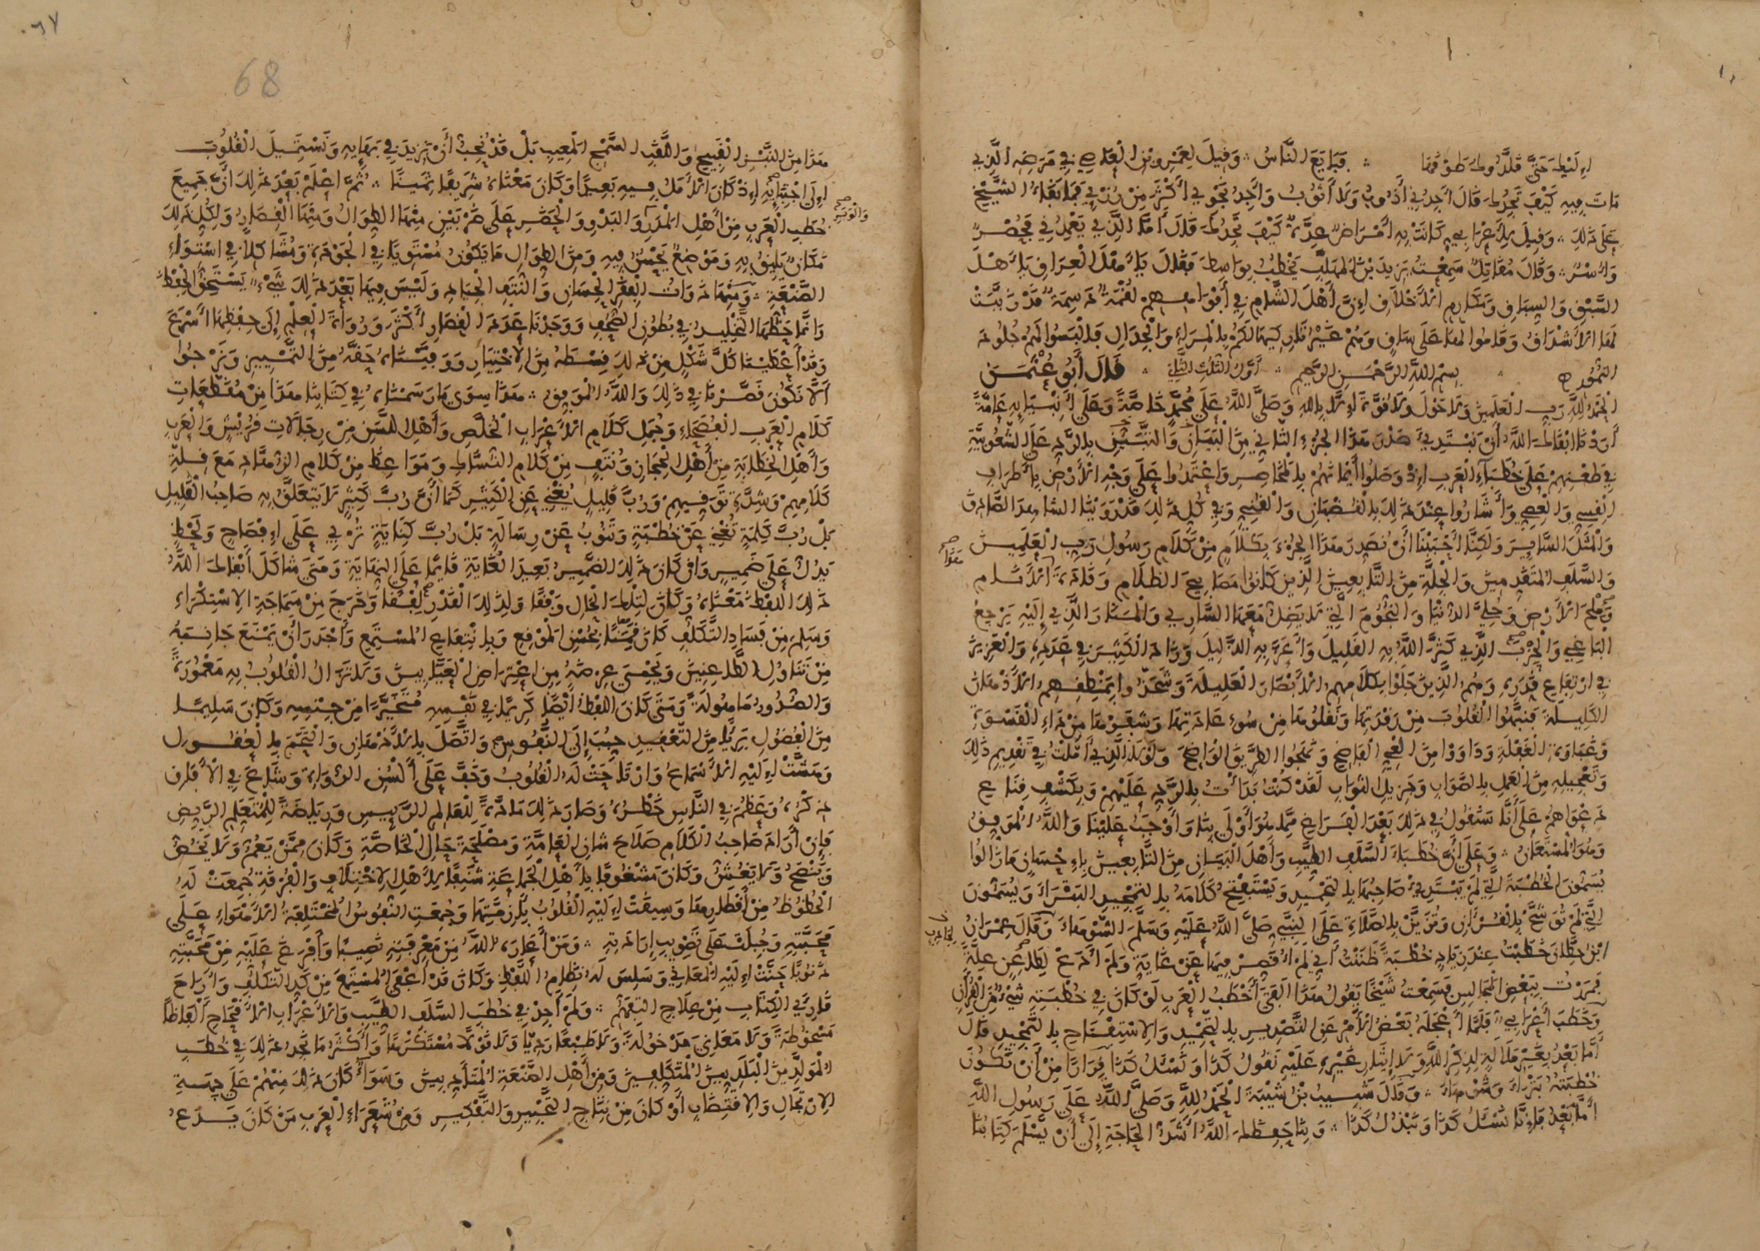 فبايع الناس وقيل لعمرو بن العاصي في مرضه الذي
مات فيه كيف تجدك قال أجدني أذوب ولا أثوب وأجد نجوي أكثر من رزئي فما بقاء الشيخ
على ذلك وقيل لأعرابي كانت به أمراض عدة كيف تجدك قال أما الذي يعمدني فحصر
وأسر وقال مقاتل سمعت يزيد بن المهلب يخطب بواسط فقال يا أهل العراق يا أهل
السبق والسباق ومكارم الأخلاق إن أهل الشام في أفواههم لقمة دسمة قد رتبت
لها الأشداق وقاموا لها على ساق وهم غير تاركيها لكم بالمراء والجدال فالبسوا لهم جلود
النمور بسم الله الرحمن الرحيم أول الثلث الثاني قال أبو عثمن
الحمد لله رب العلمين ولا حول ولا قوة إلا بالله وصلى الله على محمد خاصة وعلى أنبيائه عامة
أردنا أبقاك الله أن نبتدئ صدر هذا الجزء الثاني من البيان والتبيين بالرد على الشعوبية
في طعنهم على خطباء العرب إذ وصلوا أيمانهم بالمخاصر واعتمدوا على وجه الأرض بأطراف
القسي والعصي وأشاروا عند ذلك بالقضبان والقني وفي كل ذلك قد روينا الشاهد الصادق
والمثل السائر ولكنا أحببنا أن نصدر هذا الجزء بكلام من كلام رسول رب العلمين
والسلف المتقدمين والجلة من التابعين الذين كانوا مصابيح الظلام وقادة الأنام
وملح الأرض وحلي الدنيا والنجوم التي لا يضل معها الساري والمنار الذي إليه يرجع
الباغي والحزب الذي كثر الله به القليل وأعز به الذليل وزاد الكثير في عدده والعزيز
في ارتفاع قدره وهم الذين جلوا بكلامهم الأبصار العليلة وشحذوا بمنطقهم الأذهان
الكليلة فنبهوا القلوب من رقدتها ونقلوها من سوء عادتها وشفوها من داء القسوة
وغباوة الغفلة وداووا من العي الفاضح ونهجوا الطريق الواضح ولولا الذي أملت في تقديم ذلك
وتعجيله من العمل بالصواب وجزيل الثواب لقد كنت بدأت بالرد عليهم وبكشف قناع
دعواهم على أنا سنقول في ذلك بعد الفراغ مما هو أولى بنا وأوجب علينا والله الموفق
وهو المستعان وعلى أن خطباء السلف الطيب وأهل البيان من التابعين بإحسان ما زالوا
يسمون الخطبة التي لم يبتدئ صاحبها بالتحميد ويستفتح كلامه بالتمجيد البتراء ويسمون
التي لم توشح بالقرآن وتزين بالصلاة على النبي صلى الله عليه وسلم الشوهاء وقال عمران
ابن حطان خطبت عند زياد خطبة ظننت أني لم أقصر فيها عن غاية ولم أدع لطاعن علة
فمررت ببعض المجالس فسمعت شيخا يقول هذا الفتى أخطب العرب لو كان في خطبته شيء من القرآن
وخطب أعرابي فلما أعجله بعض الأمر عن التصدير بالتحميد والاستفتاح بالتمجيد قال
أما بعد بغير ملالة لذكر الله ولا إيثار غيره عليه نقول كذا ونسئل كذا فرارا من أن تكون
خطبته بتراء وشوهاء وقال شبيب بن شيبة الحمد لله وصلى الله على رسول الله
أما بعد فإنا نسئل كذا ونبذل كذا وبنا حفظك الله أشد الحاجة إلى أن يسلم كتابنا
68
هذا من النبز القبيح واللقب السمج المعيب بل قد يجب أن نزيد في بهائه ونستميل القلوب
إلى اجتبائه إذ كان الأمل فيه بعيدا وكان معناه شريفا ثمينا ثم اعلم بعد ذلك أن جميع
خطب العرب من أهل المدر والبدو والحضر على ضربين منها الطوال ومنها القصار ولكل ذلك
والوبر
مكان يليق به وموضع يحسن فيه ومن الطوال ما يكون مستويا في الجودة ومشاكلا في استواء
الصنعة ومنها ذوات الفقر الحسان والنتف الجياد وليس فيها بعد ذلك شيء يستحق الحفظ
وإنما حظها التخليد في بطون الصحف ووجدنا عدد القصار أكثر ورواة العلم إلى حفظها أسرع
وقد أعطينا كل شكل من ذلك قسطه من الاختيار ووفيناه حقه من التمييز ونرجوا
ألا نكون قصرنا في ذلك والله الموفق هذا سوى ما رسمناه في كتابنا هذا من مقطعات
كلام العرب الفصحاء وجمل كلام الأعراب الخلص وأهل اللسن من رجالات قريش والعرب
وأهل الخطابة من أهل الحجاز ونتف من كلام النساك ومواعظ من كلام الزهاد مع قلة
كلامهم وشدة توقيهم ورب قليل يغني عن الكثير كما أن رب كثير لا يتعلق به صاحب القليل
بل رب كلمة تغني عن خطبة وتنوب عن رسالة بل رب كناية تربي على إفصاح ولحظ
يدل على ضمير وإن كان ذلك الضمير بعيد الغاية قائما على النهاية ومتى شاكل أبقاك الله
ذلك اللفظ معناه وكان لتلك الحال وفقا ولذلك القدر لفقا وخرج من سماجة الاستكراه
وسلم من فساد التكلف كان قمينا بحسن الموقع وبانتفاع المستمع وأجدر أن يمنع جانبه
من تناول الطاعنين ويحمي عرضه من اعتراض العيابين ولا تزال القلوب به معمورة
والصدور مأهولة ومتى كان اللفظ أيضا كريما في نفسه متخيرا من جنسه وكان سليما
من الفضول بريئا من التعقيد حبب إلى النفوس واتصل بالأذهان والتحم بالعقول
وهشت إليه الأسماع وارتاحت له القلوب وخف على ألسن الرواة وشاع في الآفاق
ذكره وعظم في الناس خطره وصار ذلك مادة للعالم الرئيس ورياضة للمتعلم الريض
فإن أراد صاحب الكلام صلاح شان العامة ومصلحة حال الخاصة وكان ممن يعم ولا يخص
وينصح ولا يغش وكان مشغوفا بأهل الجماعة شنفا لأهل الاختلاف والفرقة جمعت له
الحظوظ من أقطارها وسيقت إليه القلوب بأزمتها وجمعت النفوس المختلفة الأهواء على
محبته وجبلت على تصويب إرادته ومن أعاره الله من معرفته نصيبا وأفرغ عليه من محبته
ذنوبا حنت إليه المعاني وسلس له نظام اللفظ وكان قد أعفى المستمع من كد التكلف وأراح
قارئ الكتاب من علاج التفهم ولم أجد في خطب السلف الطيب والأعراب الأقحاح ألفاظا
مسخوطة ولا معاني مدخولة ولا طبعا رديا ولا قولا مستكرها وأكثر ما تجد ذلك في خطب
المولدين البلديين المتكلفين ومن أهل الصنعة المتأدبين وسواء كان ذلك منهم على جهة
الارتجال والاقتضاب أو كان من نتاج التحبير والتفكير ومن شعراء العرب من كان يدع